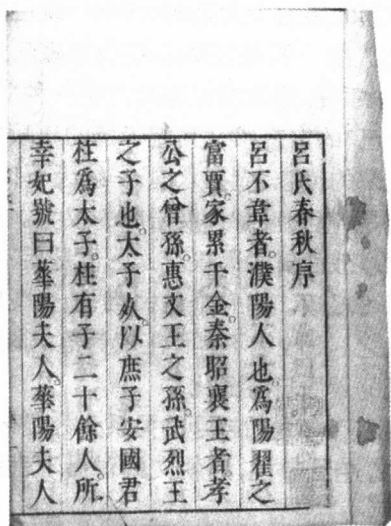 呂氏春秋序
呂不韋者。濮陽人也。爲陽翟之
富賈。家累千金。秦昭襄王者孝
公之曾孫。惠文王之孫。武烈王
之子也。太子死。以庶子安國君
柱爲太子。柱有子二十餘人。所
幸妃號曰華陽夫人。華陽夫人